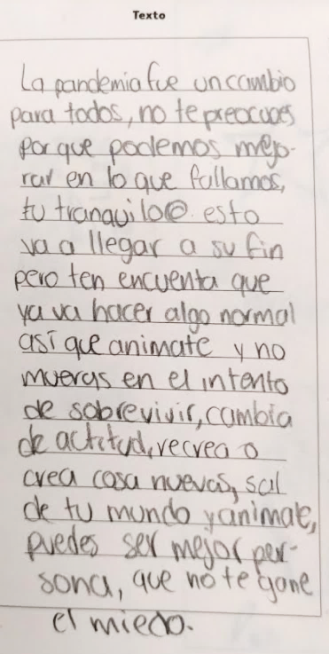 Texto
La pandemia fue un cambio
para todos, no te preocupes
por que podemos mejo-
rar en lo que fallamos,
tu tranquilo@ esto
va a llegar a su fin
pero ten encuenta que
ya va hacer algo normal
así que animate y no
mueras en el intento
de sobrevivir, cambia
de actitud, recrea o
crea cosa nuevas, sal
de tu mundo y animate,
puedes ser mejor per-
sona, que no te gane
el miedo.